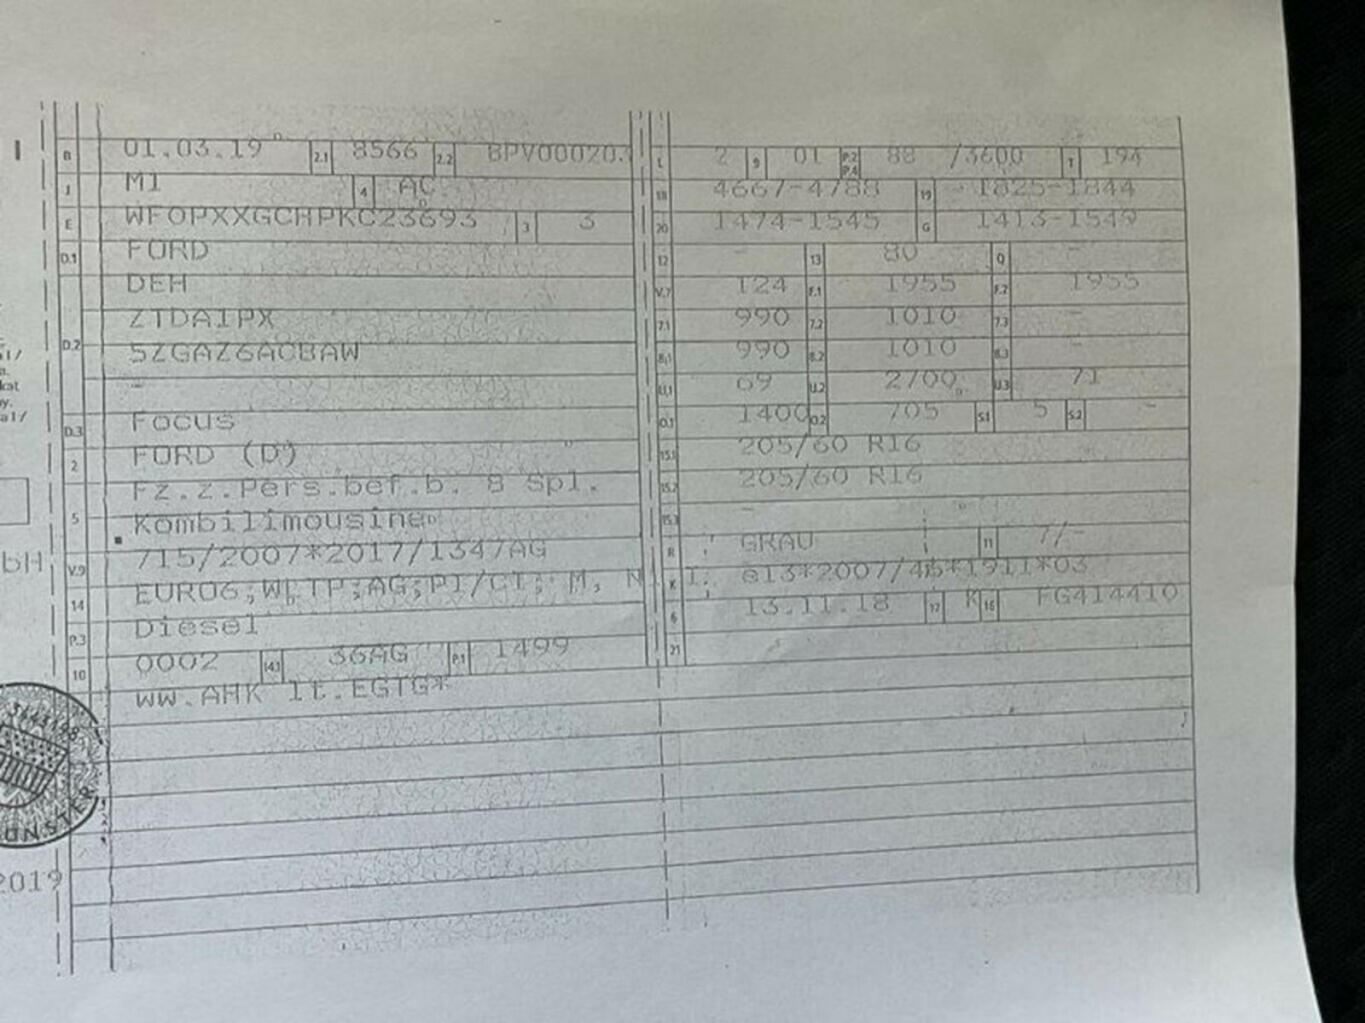 B 01.03.19 2.1 8566 2.2 BPV00020
J M1 4 AC
E WF0PXXGCHPKC23693 3 3
D.1 FORD
DEH
D.2 ZTDA1PX
5ZGAZ6ACBAW
-
D.3 Focus
2 FORD (D)
Fz.z.Pers.bef.b. 8 Spl.
5 Kombilimousine
V.9 715/2007*2017/1347AG
14 EURO6;WLTP;AG;PI/CI; M, N I
P.3 Diesel
10 0002 14.1 36AG P.1 1499
ww.AHK lt.EGTG*
L 2 9 01 P.2 P.4 88 /3600 T 194
18 4667-4788 19 1825-1844
20 1474-1545 G 1413-1549
12 - 13 80 Q -
V.7 124 F.1 1955 F.2 1955
7.1 990 7.2 1010 7.3 -
8.1 990 8.2 1010 8.3 -
U.1 69 U.2 2700 U.3 71
O.1 1400 O.2 705 S.1 5 S.2 -
15.1 205/60 R16
15.2 205/60 R16
15.3 -
R GRAU 11 7/-
K e13*2007/46*1911*03
6 13.11.18 17 K 16 FG414410
21
bH
2019